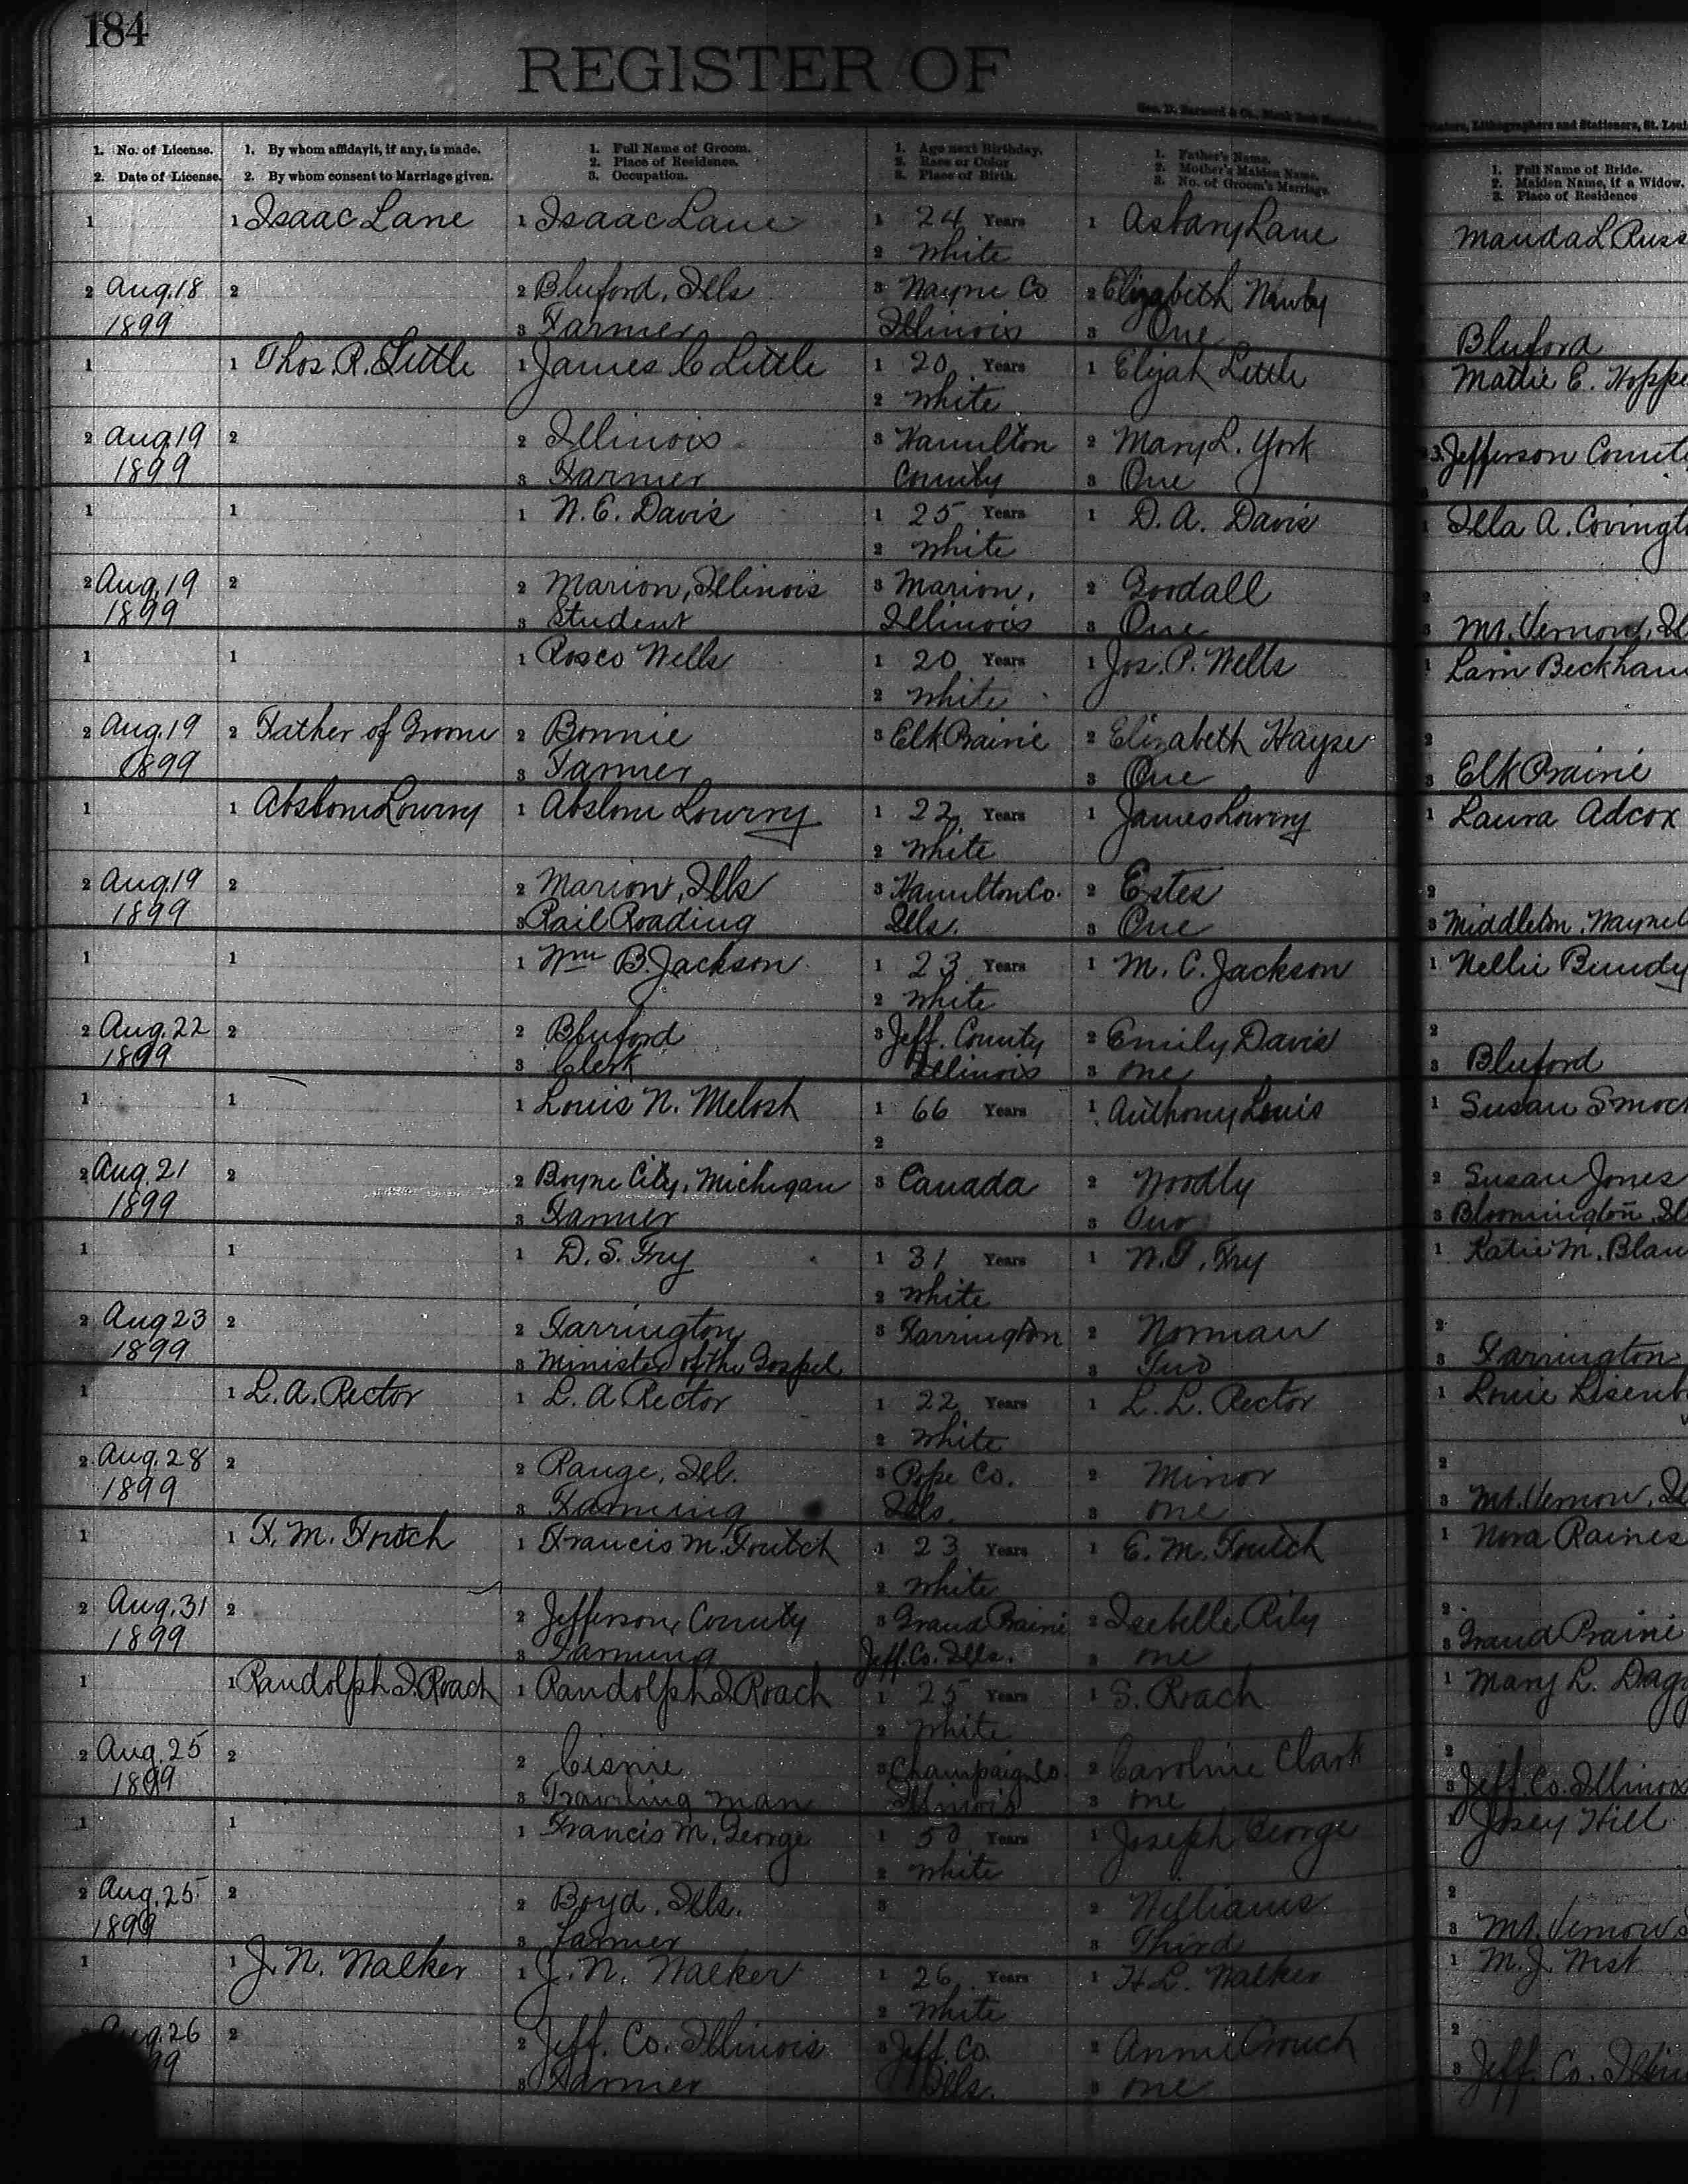 184
REGISTER OF
Geo. D. Barnard & Co., Blank Book
Lithographers and Stationers, St. Loui
1. No. of License.
2. Date of License.
1. By whom affidavit, if any, is made.
2. By whom consent to Marriage given.
1. Full Name of Groom.
2. Place of Residence.
3. Occupation.
1. Age next Birthday.
2. Race or Color
3. Place of Birth.
1. Father's Name.
2. Mother's Maiden Name.
3. No. of Groom's Marriage.
1. Full Name of Bride.
2. Maiden Name, if a Widow.
3. Place of Residence
1 1 Isaac Lane 1 Isaac Lane 1 24 Years 1 Asbury Lane Manda L Russ
2 White
2 Aug. 18 2 2 Bluford, Ills 3 Wayne Co 2 Elizabeth Newby
1899 3 Farmer Illinois 3 One Bluford
1 1 Thos. R. Little 1 James C Little 1 20 Years 1 Elijah Little Mattie E. Hoppe
2 White
2 Aug. 19 2 2 Illinois 3 Hamilton 2 Mary L. York 3. Jefferson County
1899 3 Farmer County 3 One
1 1 1 N. E. Davis 1 25 Years 1 D. A. Davis 1 Illa A. Covingt
2 White
2 Aug. 19 2 2 Marion, Illinois 3 Marion, 2 Goodall 2
1899 3 Student Illinois 3 One 3 Mt. Vernon, Il
1 1 1 Rosco Wells 1 20 Years 1 Jos. P. Wells 1 Beckham
2 White
2 Aug. 19 2 Father of Groom 2 Bonnie 3 Elk Prairie 2 Elizabeth Hayse 2
1899 3 Farmer 3 One 3 Elk Prairie
1 1 Abslom Lowry 1 Abslom Lowry 1 22 Years 1 James Lowry 1 Laura Adcox
2 White
2 Aug. 19 2 2 Marion, Ills 3 Hamilton Co. 2 Estes 2
1899 3 Rail Roading Ills. 3 One 3 Middleton, Wayne
1 1 1 Wm B. Jackson 1 23 Years 1 M. C. Jackson 1 Nellie Bundy
2 White
2 Aug. 22 2 2 Bluford 3 Jeff. County 2 Emily Davis 2
1899 3 Clerk Illinois 3 one 3 Bluford
1 1 1 Louis N. Melosh 1 66 Years 1 Anthony Louis 1 Susan Smock
2
2 Aug. 21 2 2 Boyne City, Michigan 3 Canada 2 Woodly 2 Susan Jones
1899 3 Farmer 3 Two 3 Bloomington, Il
1 1 1 D. S. Fry 1 31 Years 1 N. T. Fry 1 Katie M. Blan
2 White
2 Aug 23 2 2 Farrington 3 Farrington 2 Norman 2
1899 3 Minister of the Gospel 3 Two 3 Farrington
1 1 L. A. Rector 1 L. A Rector 1 22 Years 1 L. L. Rector 1 Louie Lisenb
2 White
2 Aug. 28 2 2 Range, Ill. 3 Pope Co. 2 Minor 2
1899 3 Farming Ills. 3 one 3 Mt. Vernon, Il
1 1 F. M. Foutch 1 Francis M. Foutch 1 23 Years 1 E. M. Foutch 1 Nora Raines
2 White
2 Aug. 31 2 2 Jefferson County 3 Grand Prairie 2 Isebelle Rily 2
1899 3 Farming Jeff. Co. Ills. 3 one 3 Grand Prairie
1 1 Randolph I. Roach 1 Randolph I. Roach 1 25 Years 1 S. Roach 1 Mary L. Dag
2 White
2 Aug. 25 2 2 Cisnie 3 Champaign Co. 2 Caroline Clark 2
1899 3 Travrling man Illinois 3 one 3 Jeff. Co. Illinois
1 1 1 Francis M. George 1 50 Years 1 Joseph George 1 Josey Hill
2 White
2 Aug. 25 2 2 Boyd, Ills. 3 2 Williams 2
1899 3 Farmer 3 Third 3 Mt. Vernon
1 1 J. N. Walker 1 J. N. Walker 1 26 Years 1 H. L. Walker 1 M. J. West
2 White
Aug. 26 2 2 Jeff. Co. Illinois 3 Jeff. Co. 2 Annie Crouch 2
99 3 Farmer Ills. 3 one 3 Jeff. Co. Illin